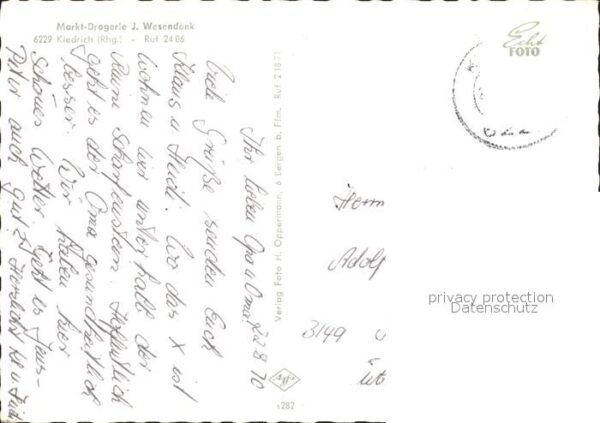 Markt-Drogerie J. Wesendonk
6229 Kiedrich (Rhg.) - Ruf 24 06
Echt
FOTO
22.8.70
Ihr lieben Opa u. Oma!
Viele Grüße senden Euch
Klaus u. Heidi. Wo das X ist
wohnen wir unterhalb der
Ruine Scharfenstein. Hoffentlich
geht es der Oma gesundheitlich
besser. Wir haben hier
schönes Wetter. Geht es
Peter auch gut?
Verlag Foto H. Oppermann, 6 Bergen b. Ffm. Ruf 2 18 71
Agfa
s282
Herrn
Adolf
3149
privacy protection
Datenschutz